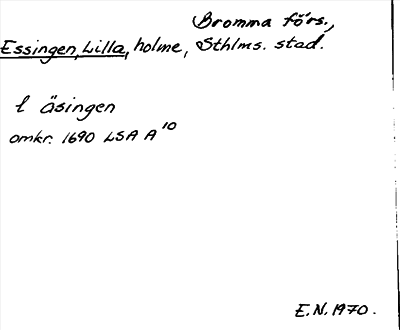 Bromma förs.,
Essingen, Lilla, holme, Sthlms. stad.
l äsingen
omkr. 1690 LSA A 10
E.N. 1970.